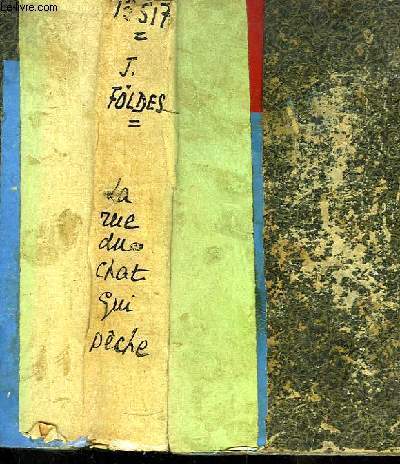 Le-livre.com
13517
J.
FÖLDES
La
rue
du
chat
qui
pêche